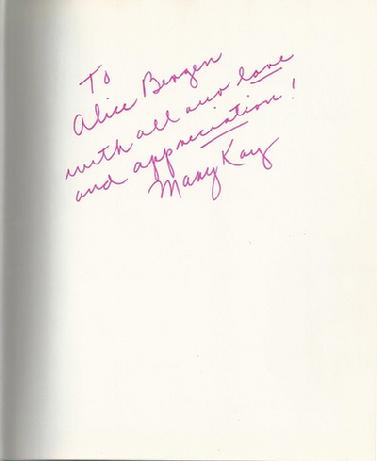 To
Alice Bergen
with all our love
and appreciation!
Mary Kay